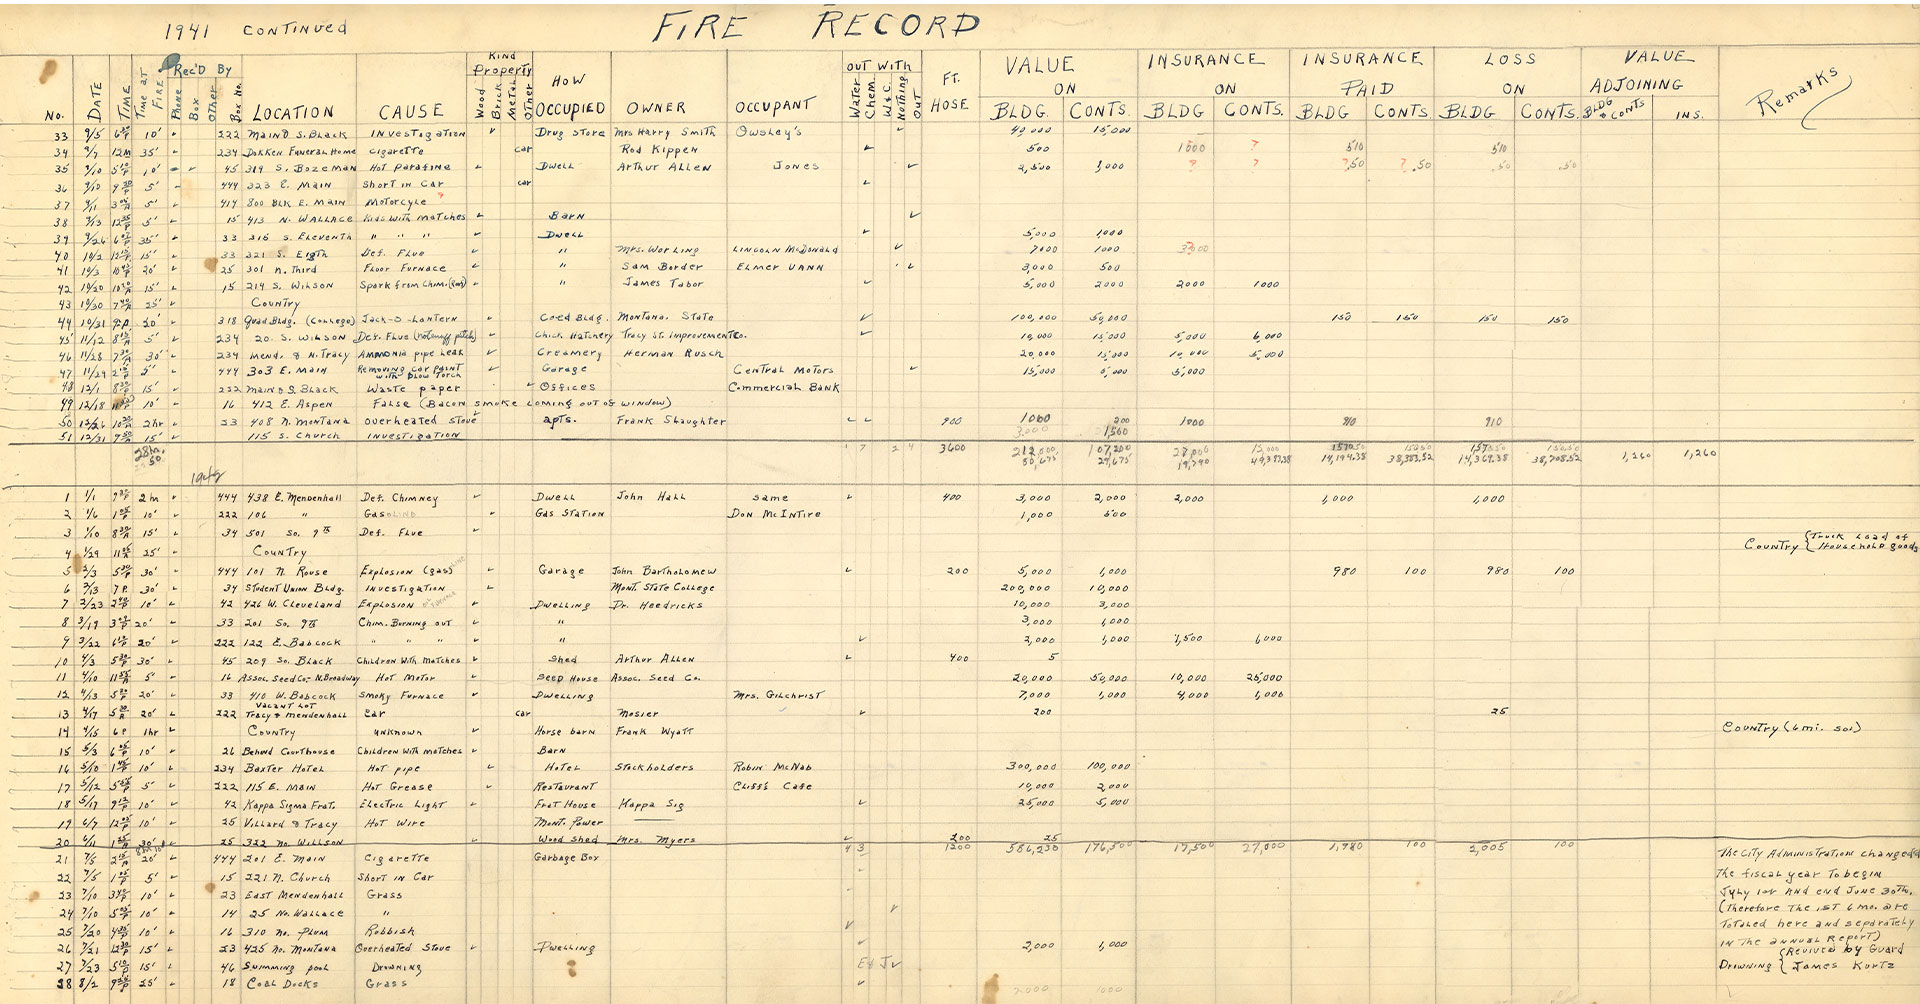 1941 CONTINUED FIRE RECORD
No. DATE TIME TIME AT FIRE REC'D BY Phone Box Other Box No. LOCATION CAUSE Kind Property Wood Brick Metal Other HOW OCCUPIED OWNER OCCUPANT OUT WITH Water Chem. W&C. Nothing Out FT. HOSE VALUE ON BLDG CONTS. INSURANCE ON BLDG CONTS. INSURANCE PAID BLDG CONTS. LOSS ON BLDG CONTS. VALUE ADJOINING BLDG & CONTS INS. Remarks
33 9/5 10' 222 Main & S. Black Investigation Drug store Mrs Harry Smith Owsley's 40,000 15,000
34 9/7 12M 35' 234 Dokken Funeral Home Cigarette car Rod Kippen 500 1000 ? 510 510
35 9/10 10' 45 319 S. Bozeman Hot Parafine Dwell Arthur Allen Jones 2,500 1,000 ? ? ?.50 ?.50 .50 .50
36 9/10 5' 444 323 E. Main Short in Car car
37 9/11 5' 414 800 Blk E. Main Motorcyle ?
38 9/13 5' 15 413 N. Wallace Kids With Matches Barn
39 9/26 35' 33 316 S. Eleventh " " " Dwell 5,000 1,000
40 10/2 15' 33 321 S. Eigth Def. Flue " Mrs. Worling Lincoln McDonald 7000 1000
41 10/3 20' 25 301 N. Third Floor Furnace " Sam Border Elmer Vann 3,000 500
42 10/20 15' 15 214 S. Willson Spark from Chim. " James Tabor 5,000 2000 2000 1000
43 10/30 25' Country
44 10/31 20' 318 Quad Bldg. (College) Jack-O-Lantern Coed Bldg. Montana State 100,000 50,000 150 150 150 150
45 11/12 5' 234 20 S. Willson Def. Flue Chick Hatchery Tracy St. Improvement Co. 10,000 15,000 5,000 6,000
46 11/28 30' 234 Mend. & N. Tracy Ammonia pipe leak Creamery Herman Rusch 20,000 15,000 10,000 5,000
47 11/29 5' 444 303 E. Main Removing car paint with blow torch Garage Central Motors 15,000 5,000
48 12/1 15' 222 Main & S. Black Waste paper Offices Commercial Bank
49 12/18 10' 16 412 E. Aspen False (Bacon smoke coming out of window)
50 12/26 2hr 23 408 N. Montana Overheated stove apts. Frank Slaughter 900 1000 200 1000 910 910
51 12/31 15' 115 S. Church Investigation 3,000 1,500
28hr. 50. 3600 212,000 107,200 27,000 12,000 1570.50 1570.50
80,675 29,675 19,790 49,387.38 14,194.38 38,383.52 14,369.38 38,708.52 1,260 1,260
1942
1 1/1 2hr 444 438 E. Mendenhall Def. Chimney Dwell John Hall same 400 3,000 2,000 2,000 1,000 1,000
2 1/6 10' 222 106 " Gasoline Gas Station Don McIntire 1,000 500
3 1/10 15' 34 501 So. 9th Def. Flue
4 1/29 25' Country Country {Truck Load of Household goods
5 2/3 30' 444 101 N. Rouse Explosion (gas) Garage John Bartholomew 200 5,000 1,000 980 100 980 100
6 2/13 7P. 30' 34 Student Union Bldg. Investigation Mont. State College 200,000 10,000
7 2/23 10' 42 426 W. Cleveland Explosion Dwelling Dr. Heedricks 10,000 3,000
8 3/19 20' 33 201 So. 9th Chim. Burning out " 3,000 1,000
9 3/22 20' 222 122 E. Babcock " " " " 2,000 1,000 1,500 1,000
10 4/3 30' 45 209 So. Black Children With Matches Shed Arthur Allen 400 5
11 4/10 5' 16 Assoc. Seed Co.- N. Broadway Hot Motor Seed House Assoc. Seed Co. 20,000 50,000 10,000 25,000
12 4/13 20' 33 410 W. Babcock Smoky Furnace Dwelling Mrs. Gilchrist 7,000 1,000 4,000 1,000
13 4/17 20' 222 Vacant Lot Tracy & Mendenhall Car car Mosier 200 25
14 4/15 6P 1hr Country unknown Horse barn Frank Wyatt Country (6 mi. so.)
15 5/3 10' 26 Behind Courthouse Children With matches Barn
16 5/10 10' 234 Baxter Hotel Hot pipe Hotel Stockholders Robin McNab 300,000 100,000
17 5/12 5' 222 115 E. Main Hot Grease Restaurant Cliff's Cafe 10,000 2,000
18 5/17 10' 42 Kappa Sigma Frat. Electric Light Frat House Kappa Sig 25,000 5,000
19 6/7 10' 25 Villard & Tracy Hot Wire Mont. Power
20 6/11 30' 25 322 No. Willson Wood Shed Mrs. Myers 200 25
4 3 1200 586,230 176,500 17,500 27,000 1,980 100 2,005 100
21 7/5 20' 444 201 E. Main Cigarette Garbage Box The City Administration changed
22 7/5 5' 15 221 N. Church Short in Car The fiscal year to begin
23 7/10 10' 23 East Mendenhall Grass July 1st And end June 30th.
24 7/10 10' 14 25 No. Wallace " (Therefore The 1st 6 mo. are
25 7/20 10' 16 310 No. Plum Robbish Totaled here and separately
26 7/21 15' 23 425 No. Montana Overheated Stove Dwelling 2,000 1,000 in the annual Report)
27 7/23 15' 46 Swimming pool Drowning E & J Drowning {Revived by Guard James Kurtz
28 8/2 25' 18 Coal Docks Grass 2000 1000